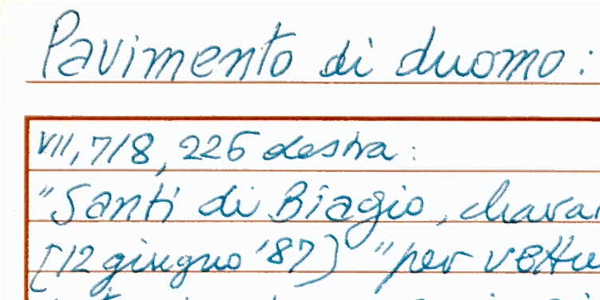 Pavimento di duomo:
VII, 7/8, 226 destra:
"Santi di Biagio,
[12 giugno '87] "per